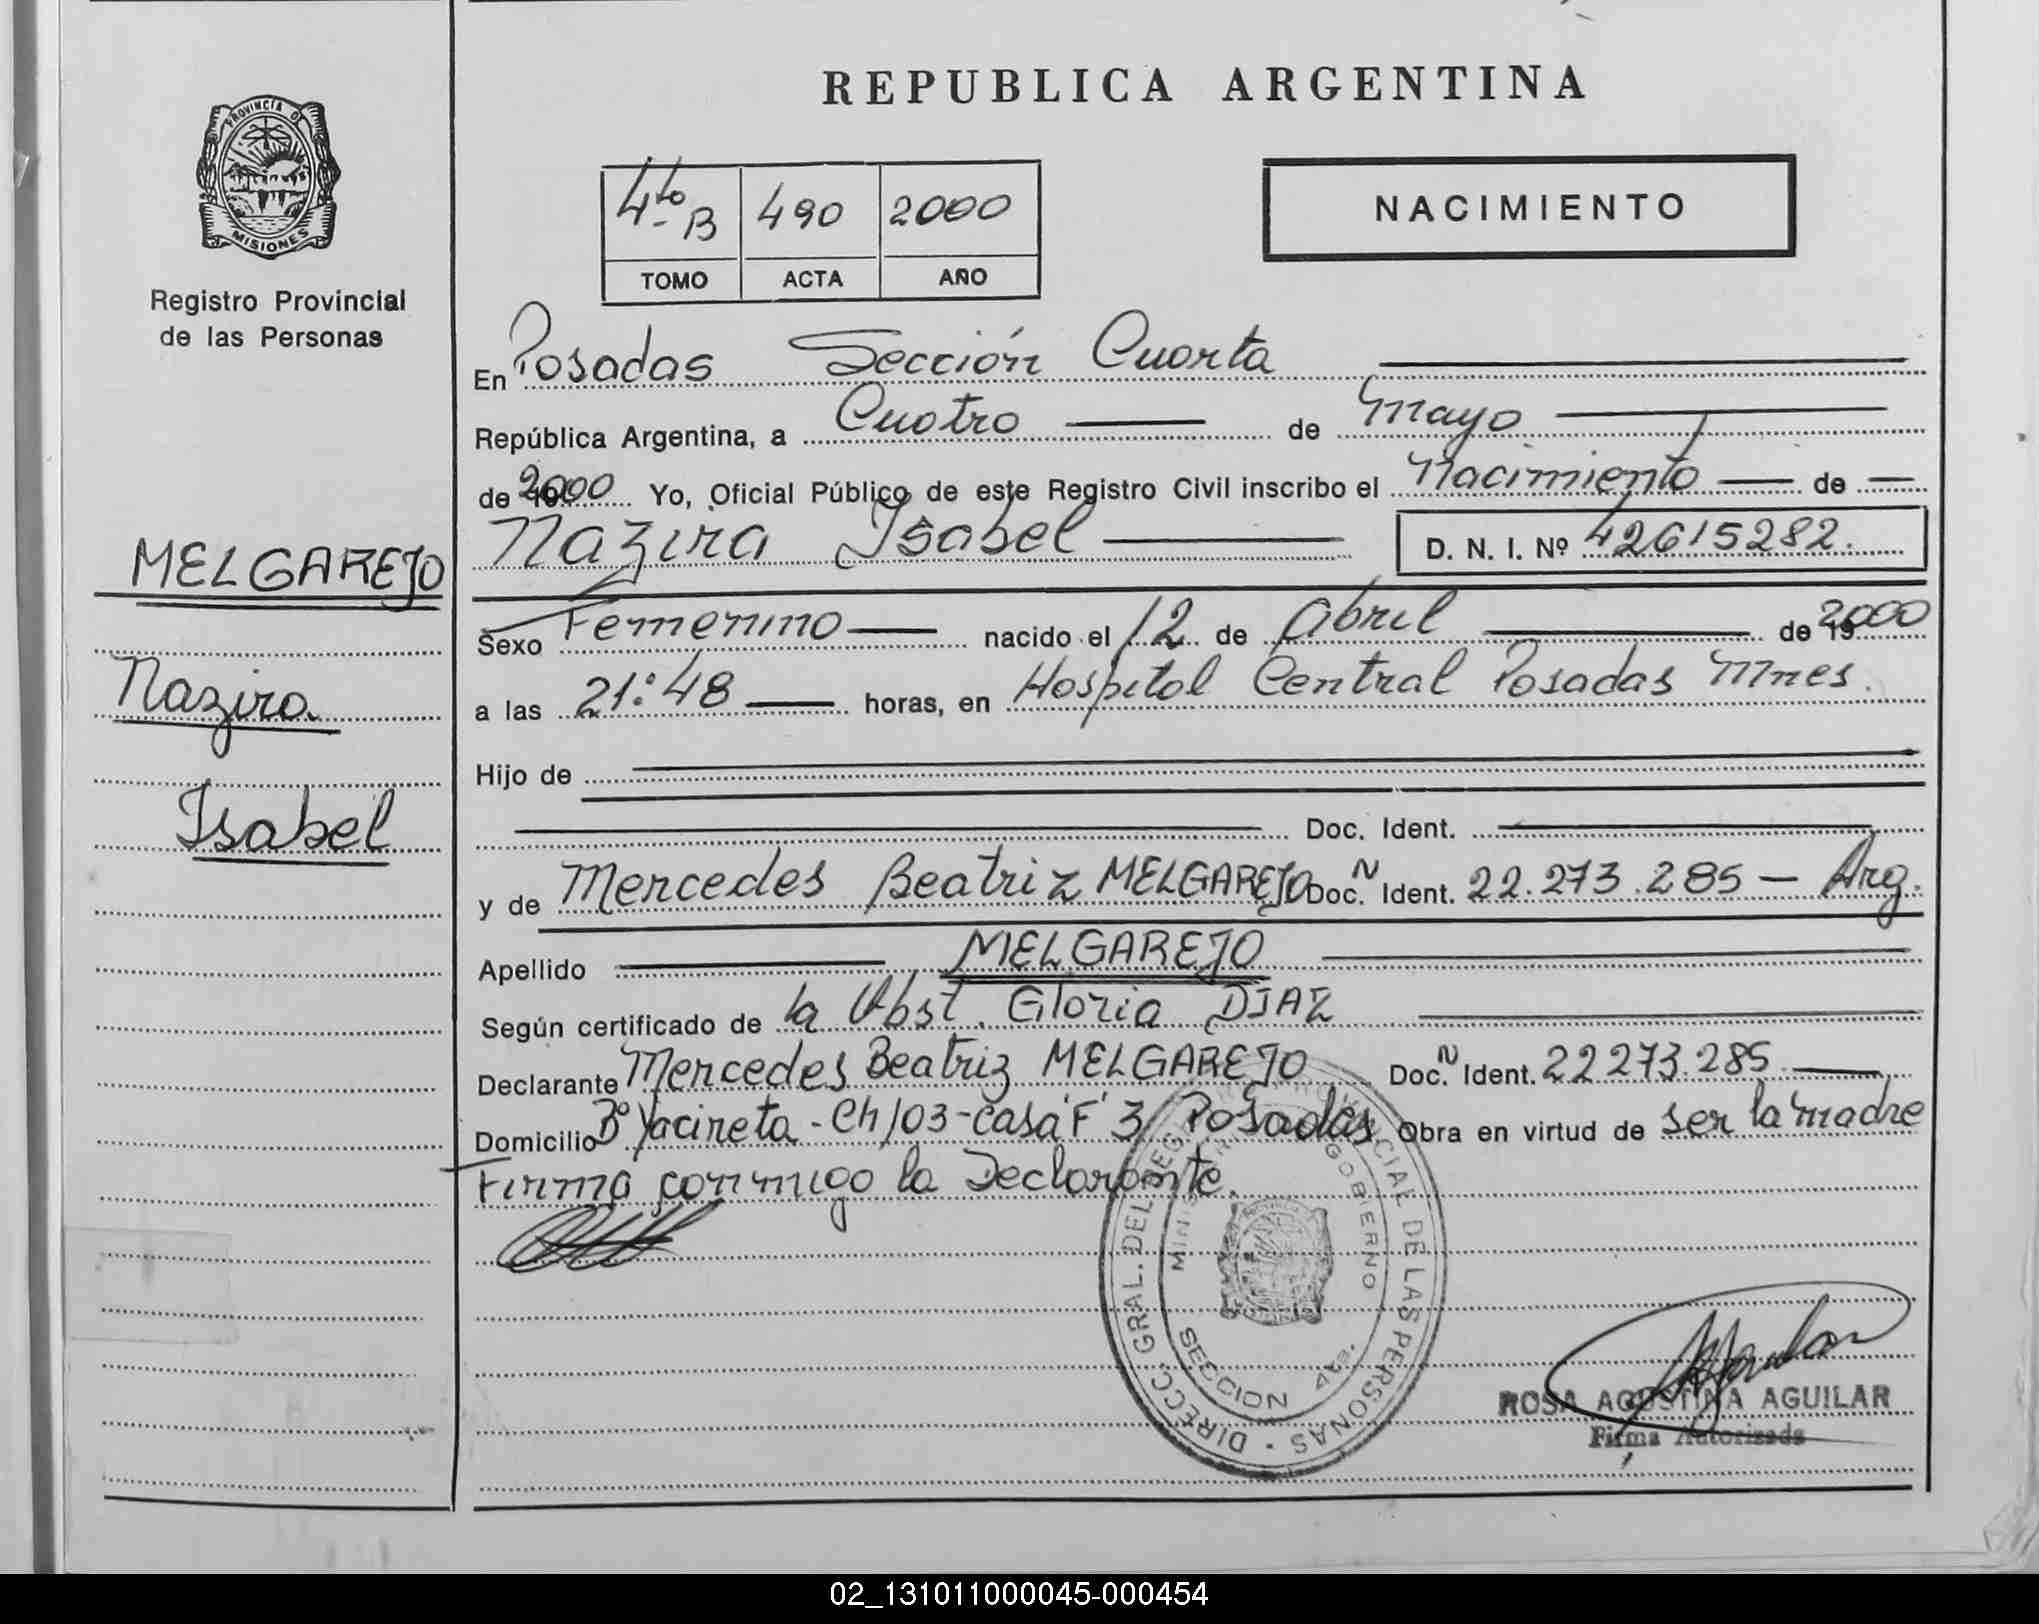 PROVINCIA DE
MISIONES
Registro Provincial
de las Personas
MELGAREJO
Nazira
Isabel
REPUBLICA ARGENTINA
4to B 490 2000
TOMO ACTA AÑO
NACIMIENTO
En Posadas Sección Cuarta
República Argentina, a Cuatro de Mayo
de 2000 Yo, Oficial Público de este Registro Civil inscribo el Nacimiento de
Nazira Isabel D. N. I. Nº 42615282.
Sexo Femenino nacido el 12 de Abril de 2000
a las 21:48 horas, en Hospital Central Posadas Mnes.
Hijo de
Doc. Ident.
y de Mercedes Beatriz MELGAREJO Doc. N Ident. 22.273.285 - Arg.
Apellido MELGAREJO
Según certificado de la Obst. Gloria DIAZ
Declarante Mercedes Beatriz MELGAREJO Doc. N Ident. 22.273.285
Domicilio Bº Yacireta - Ch 103 - casa "F" 3 Posadas Obra en virtud de ser la madre
Firma conmigo la Declarante.
DIRECC. GRAL. DEL REG. PROVINCIAL DE LAS PERSONAS
GOBIERNO
SECCION 4ta.
ROSA AGUSTINA AGUILAR
Firma Autorizada
02_131011000045-000454